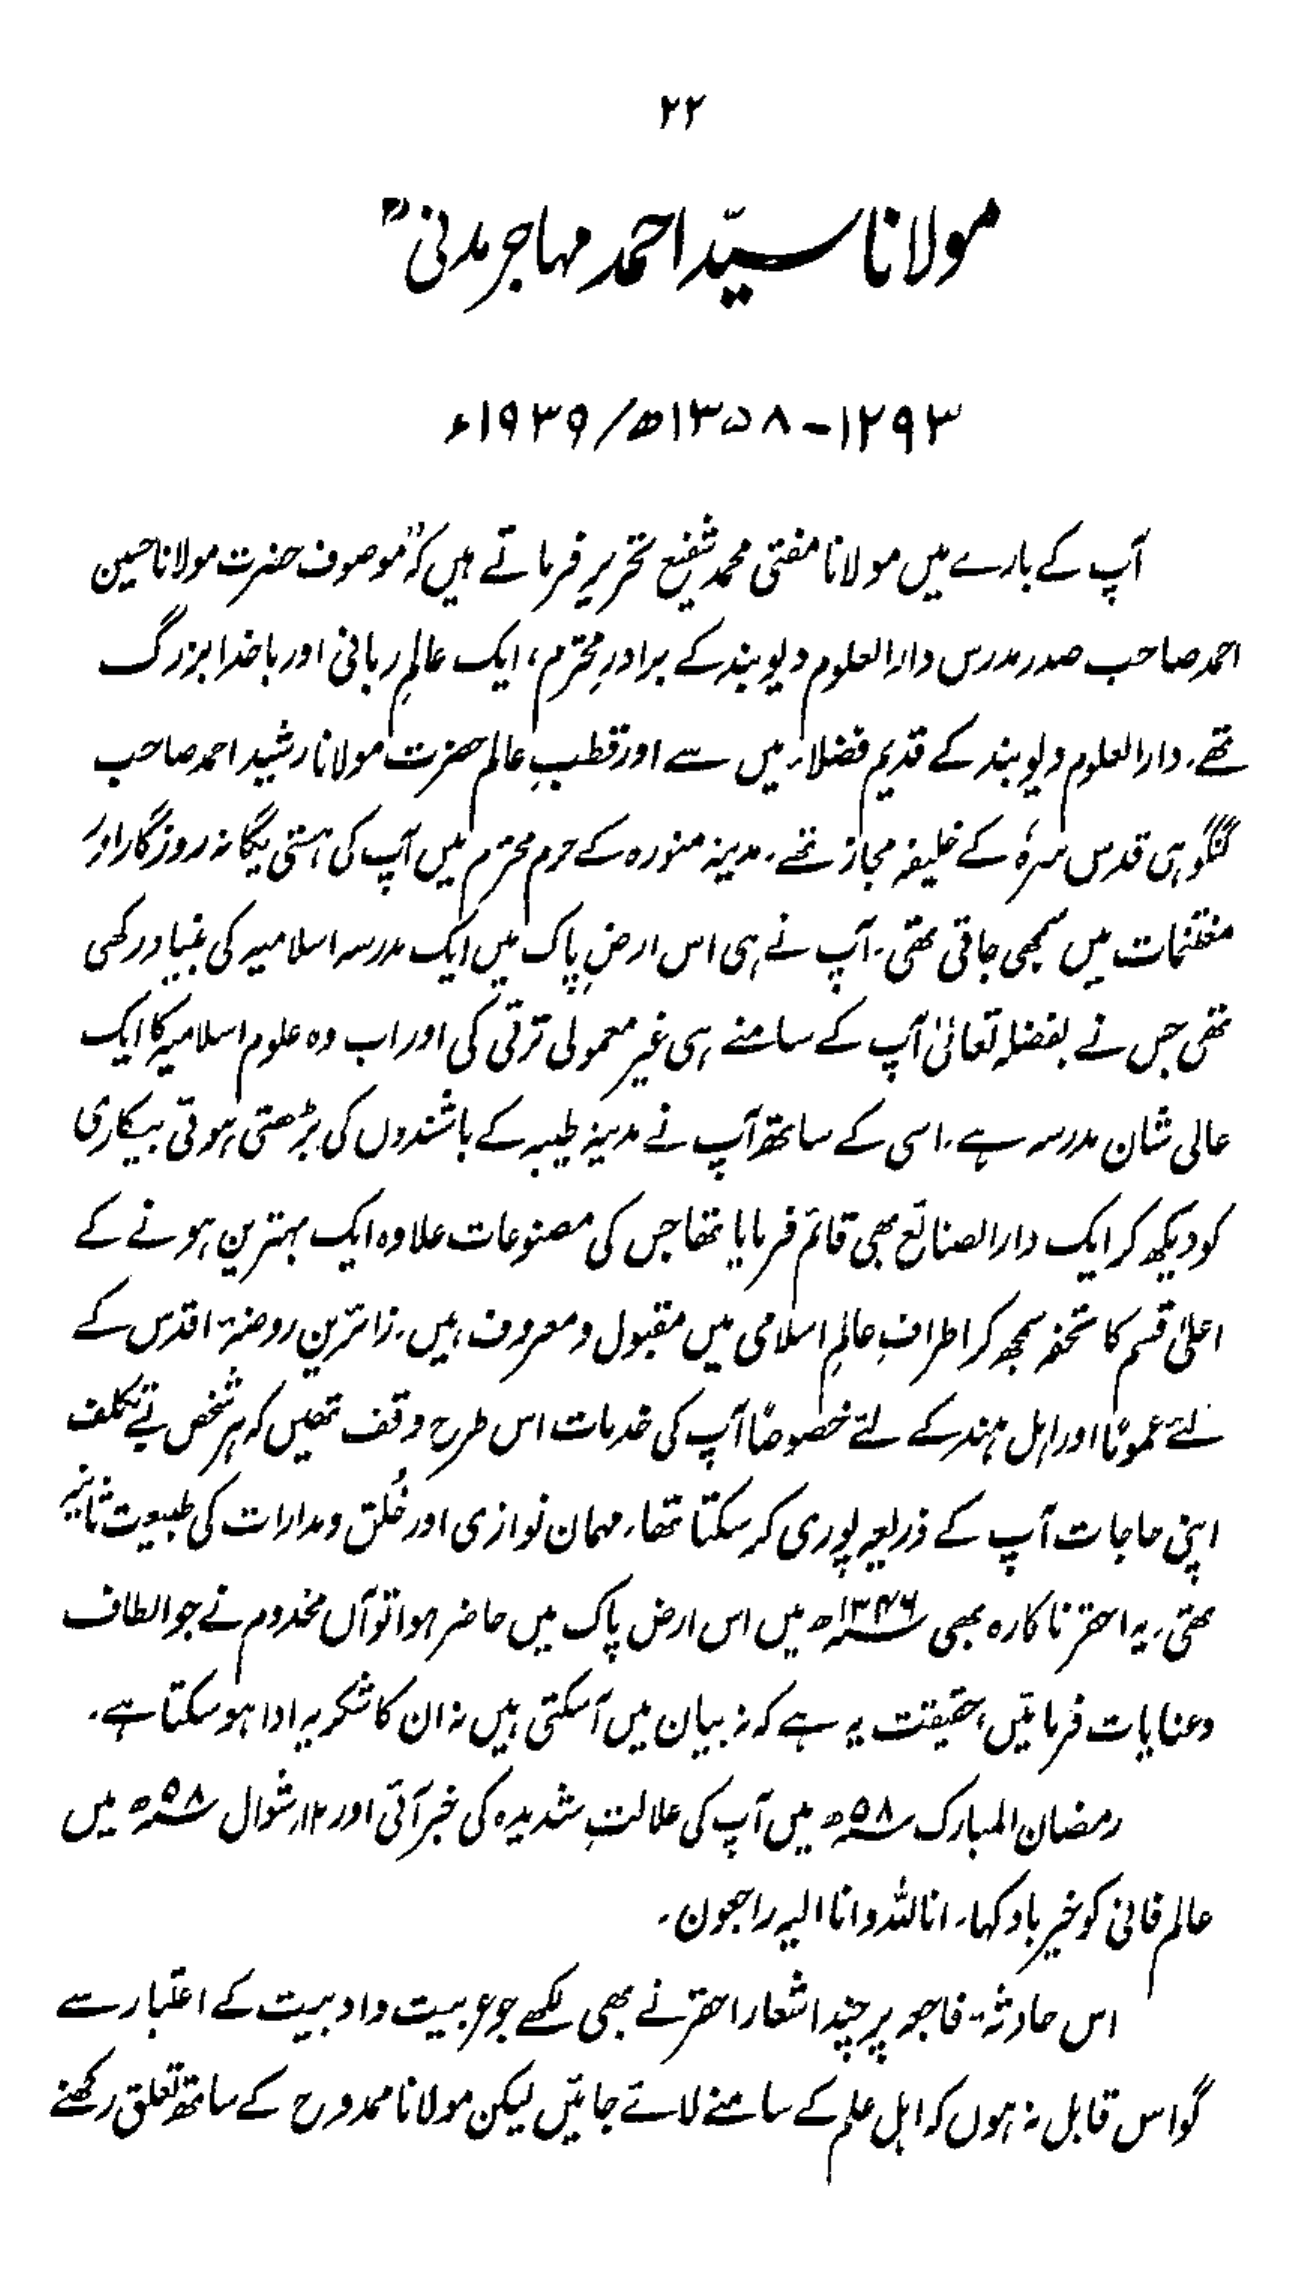 ۲۲
مولانا سیّد احمد مہاجر مدنیؒ
۱۲۹۳-۱۳۵۸ھ/۱۹۳۹ء
آپ کے بارے میں مولانا مفتی محمد شفیع تحریر فرماتے ہیں کہ "موصوف حضرت مولانا حسین
احمد صاحب صدر مدرس دارالعلوم دیوبند کے برادرِ محترم، ایک عالمِ ربانی اور باخدا بزرگ
تھے۔ دارالعلوم دیوبند کے قدیم فضلاء میں سے اور قطبِ عالم حضرت مولانا رشید احمد صاحب
گنگوہی قدس سرہٗ کے خلیفہ مجاز تھے۔ مدینہ منورہ کے حرم محترم میں آپ کی ہستی یگانہ روزگار اور
مغتنمات میں سمجھی جاتی تھی۔ آپ نے ہی اس ارضِ پاک میں ایک مدرسہ اسلامیہ کی بنیاد رکھی
تھی جس نے بفضلہ تعالیٰ آپ کے سامنے ہی غیر معمولی ترقی کی اور اب وہ علوم اسلامیہ کا ایک
عالی شان مدرسہ ہے۔ اسی کے ساتھ آپ نے مدینہ طیبہ کے باشندوں کی بڑھتی ہوئی بیکاری
کو دیکھ کر ایک دارالصنائع بھی قائم فرمایا تھا جس کی مصنوعات علاوہ ایک بہترین ہونے کے
اعلیٰ قسم کا تحفہ سمجھ کر اطرافِ عالمِ اسلامی میں مقبول و معروف ہیں۔ زائرینِ روضۂ اقدس کے
لئے عموماً اور اہل ہند کے لئے خصوصاً آپ کی خدمات اس طرح وقف تھیں کہ ہر شخص بے تکلف
اپنی حاجات آپ کے ذریعہ پوری کر سکتا تھا۔ مہمان نوازی اور خُلق و مدارات کی طبیعت ثانیہ
تھی۔ یہ احقر ناکارہ بھی ۱۳۴۶ھ میں اس ارض پاک میں حاضر ہوا تو آں مخدوم نے جو الطاف
و عنایات فرمائیں، حقیقت یہ ہے کہ نہ بیان میں آسکتی ہیں نہ ان کا شکریہ ادا ہو سکتا ہے۔
رمضان المبارک ۵۸ھ میں آپ کی علالتِ شدیدہ کی خبر آئی اور ۱۲؍شوال ۵۸ھ میں
عالم فانی کو خیر باد کہا۔ انا للہ وانا الیہ راجعون۔
اس حادثۂ فاجعہ پر چند اشعار احقر نے بھی لکھے جو عربیت و ادبیت کے اعتبار سے
گو اس قابل نہ ہوں کہ اہل علم کے سامنے لائے جائیں لیکن مولانا ممدوح کے ساتھ تعلق رکھنے